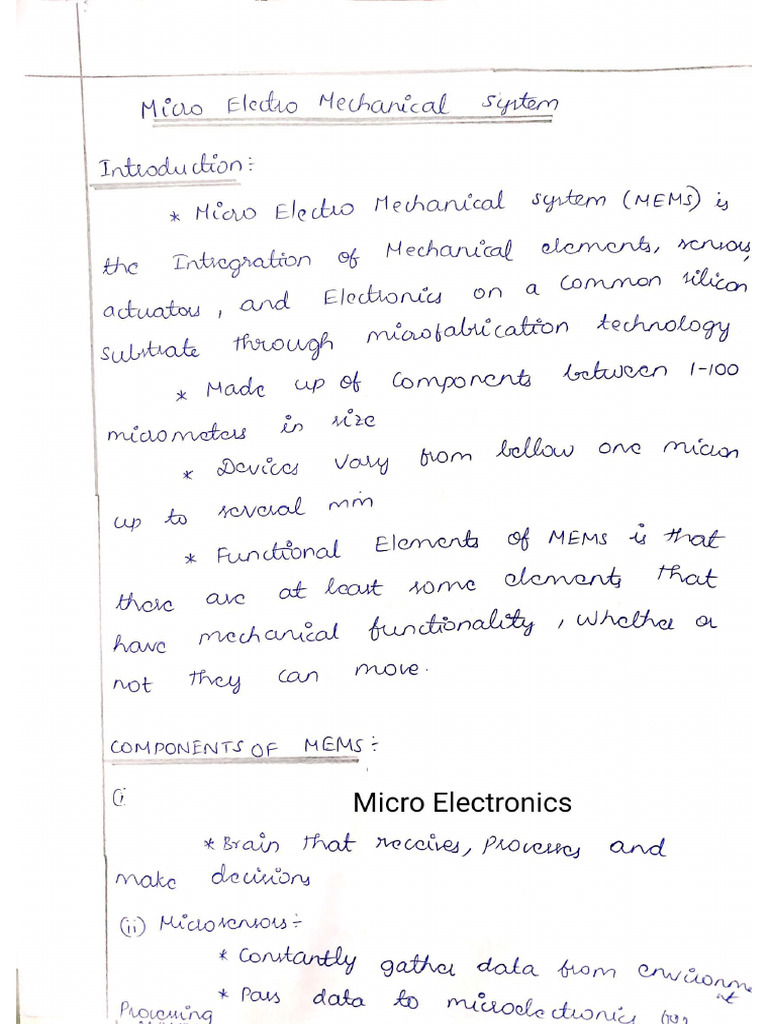 Micro Electro Mechanical System
Introduction:-
* Micro Electro Mechanical system (MEMS) is
the Integration of Mechanical elements, sensors,
actuators, and Electronics on a common silicon
substrate through microfabrication technology
* Made up of Components between 1-100
micrometers in size
* Devices vary from bellow one micron
up to several mm
* Functional Elements of MEMS is that
there are at least some elements that
have mechanical functionality, whether or
not they can move.
COMPONENTS OF MEMS:-
(i Micro Electronics
* Brain that receives, Processes and
make decisions
(ii) Microsensors:-
* Constantly gather data from environment
* Pass data to microelectronics for
Processing